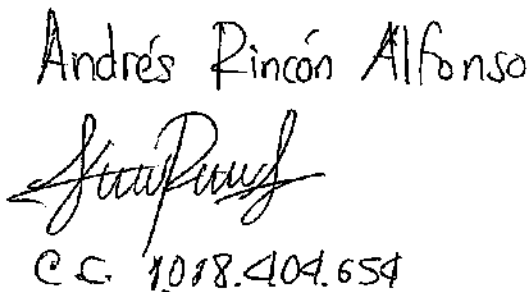 Andrés Rincón Alfonso
C.C. 1.018.404.654